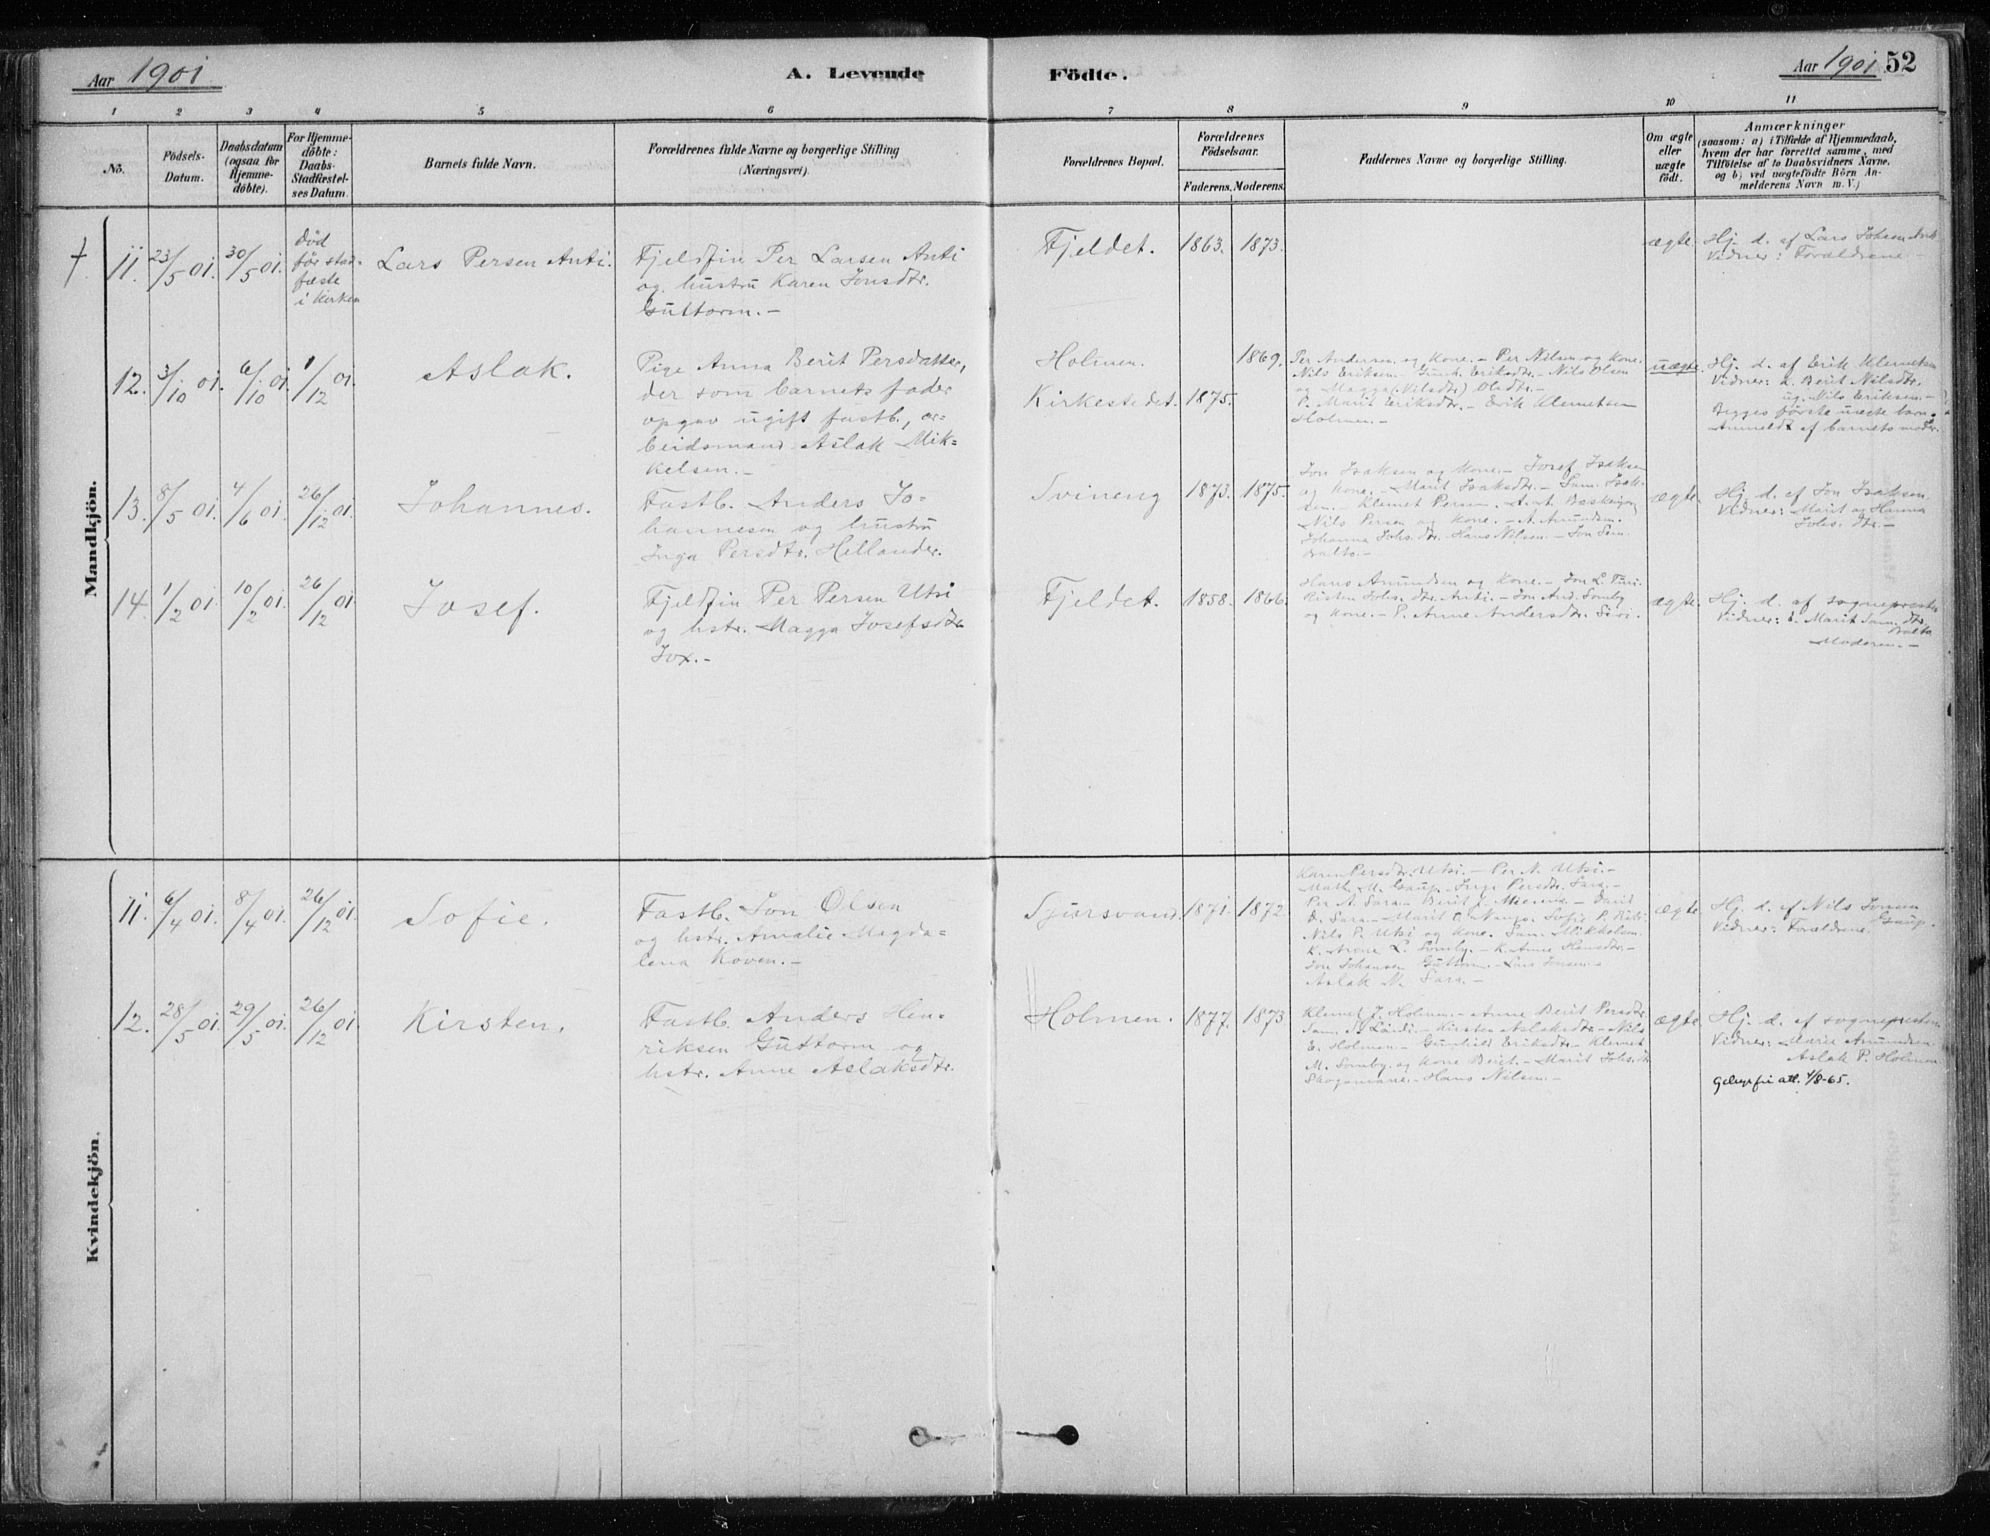 Aar 1901
A. Levende Födte.
Aar 1901. 52
1 2 3 4 5 6 7 8 9 10 11
No.
Födsels-
Datum.
Daabsdatum
(ogsaa for
Hjemme-
döbte).
For Hjemme-
döbte:
Daabs-
Stadfæstel-
ses Datum.
Barnets fulde Navn.
Forældrenes fulde Navne og borgerlige Stilling
(Næringsvei).
Forældrenes Bopæl.
Forældrenes
Födselsaar.
Faderens. Moderens.
Faddernes Navne og borgerlige Stilling.
Om ægte
eller
uægte
födt.
Anmærkninger
(saasom: a) i Tilfælde af Hjemmedaab,
hvem der har forrettet samme, med
Tilföielse af to Daabsvidners Navne.
og b) ved uægtefödte Börn An-
melderens Navn m. V.)
Mandkjön.
11. 23/5 01. 30/5 01.
Död
før stad-
fæste
i Kirken
Lars Persen Anti.
Fjeldfin Per Larsen Anti
og hustru Karen Jonsdtr.
Guttorm.-
Fjeldet. 1863. 1873.
ægte.
Hj. d. af Lars Johsen Anti
Vidner: Forældrene -
12. 3/10 01. 6/10 01. 1/12 01.
Aslak.
Pige Anna Berit Persdatter,
der som barnets fader
opgav ugift fastb., ar-
beidsmand Aslak Mik-
kelsen.-
Holmen. 1869.
Kirkestedet. 1875.
Per Andersen og Kone.- Per Nilsen og Kone.
Nils Eriksen.- Gunh. Eriksdtr.- Nils Olsen
og Magga (Nilsdtr) Olsdtr.-
P. Marit Eriksdtr.- Erik Klemetsen
Holmen.-
uægte.
Hj. d. af Erik Klemetsen
Vidner: d. Berit Nilsdtr.
ug. Nils Eriksen.-
Begges første uægte barn.
Anmeldt af barnets moder.
13. 8/5 01. 4/6 01. 26/12 01.
Johannes.
Fastb. Anders Jo-
hannesen og hustru
Inga Persdtr. Hellander.
Svineng 1873. 1875.
Jon Isaksen og Kone.- Josef Isaksen
og Kone.- Marit Isaksdtr.- Sam. Isak-
sen.- Klemet Persen.
Nils Persen og Kone.- A. Amundsen.
Johanna Johs. dtr. Hans Nilsen.- Jon Sam.
Balto.-
ægte.
Hj. d. af Jon Isaksen.
Vidner: Marit og Hanna
Johs. dtr.-
14. 1/2 01. 10/2 01. 26/12 01.
Josef.
Fjeldfin Per Persen Utsi
og hstr. Magga Josefsdtr.
Jox.-
Fjeldet. 1858. 1866.
Hans Amundsen og Kone.- Jon L. Turi.
Risten Johs. dtr. Anti.- Jon And. Somby
og Kone.- P. Anne Andersdtr. Siri.
ægte.
Hj. d. af sognepresten
Vidner: d. Marit Sam. dtr.
Balto
Moderen.-
Kvindekjön.
11. 6/4 01. 8/4 01. 26/12 01.
Sofie.
Fastb. Jon Olsen
og hstr. Amalie Magda-
lena Koven.-
Sjursvand. 1871. 1872.
Karen Persdtr. Utsi.- Per N. Utsi.-
Math. M. Gaup.- Inga Persdtr. Sara.-
Per A. Sara.- Berit
Nils P. Utsi og Kone. Sam. Mikkelsen.
K. Anne Hansdtr.-
Jon Johansen Guttorm.- Lars Jonsen.-
Aslak M. Sara.-
ægte
Hj. d. af Nils Jonsen
Gaup.
Vidner: Forældrene.
12. 28/5 01. 29/5 01. 26/12 01.
Kirsten.
Fastb. Anders Hen-
riksen Guttorm og
hstr. Anne Aslaksdtr.
Holmen. 1877. 1873.
Klemet J. Holmen.- Anne Berit Persdtr
Kirsten Aslaksdtr.- Nils
E. Holmen.- Gunhild Eriksdtr.- Klemet
M. Somby og Kone Berit.- Marit Johs. dtr
Hans Nilsen.-
ægte
Hj. d. af sognepresten.
Vidner: Marie Amundsen.
Aslak P. Holmen
att. 4/8-65.